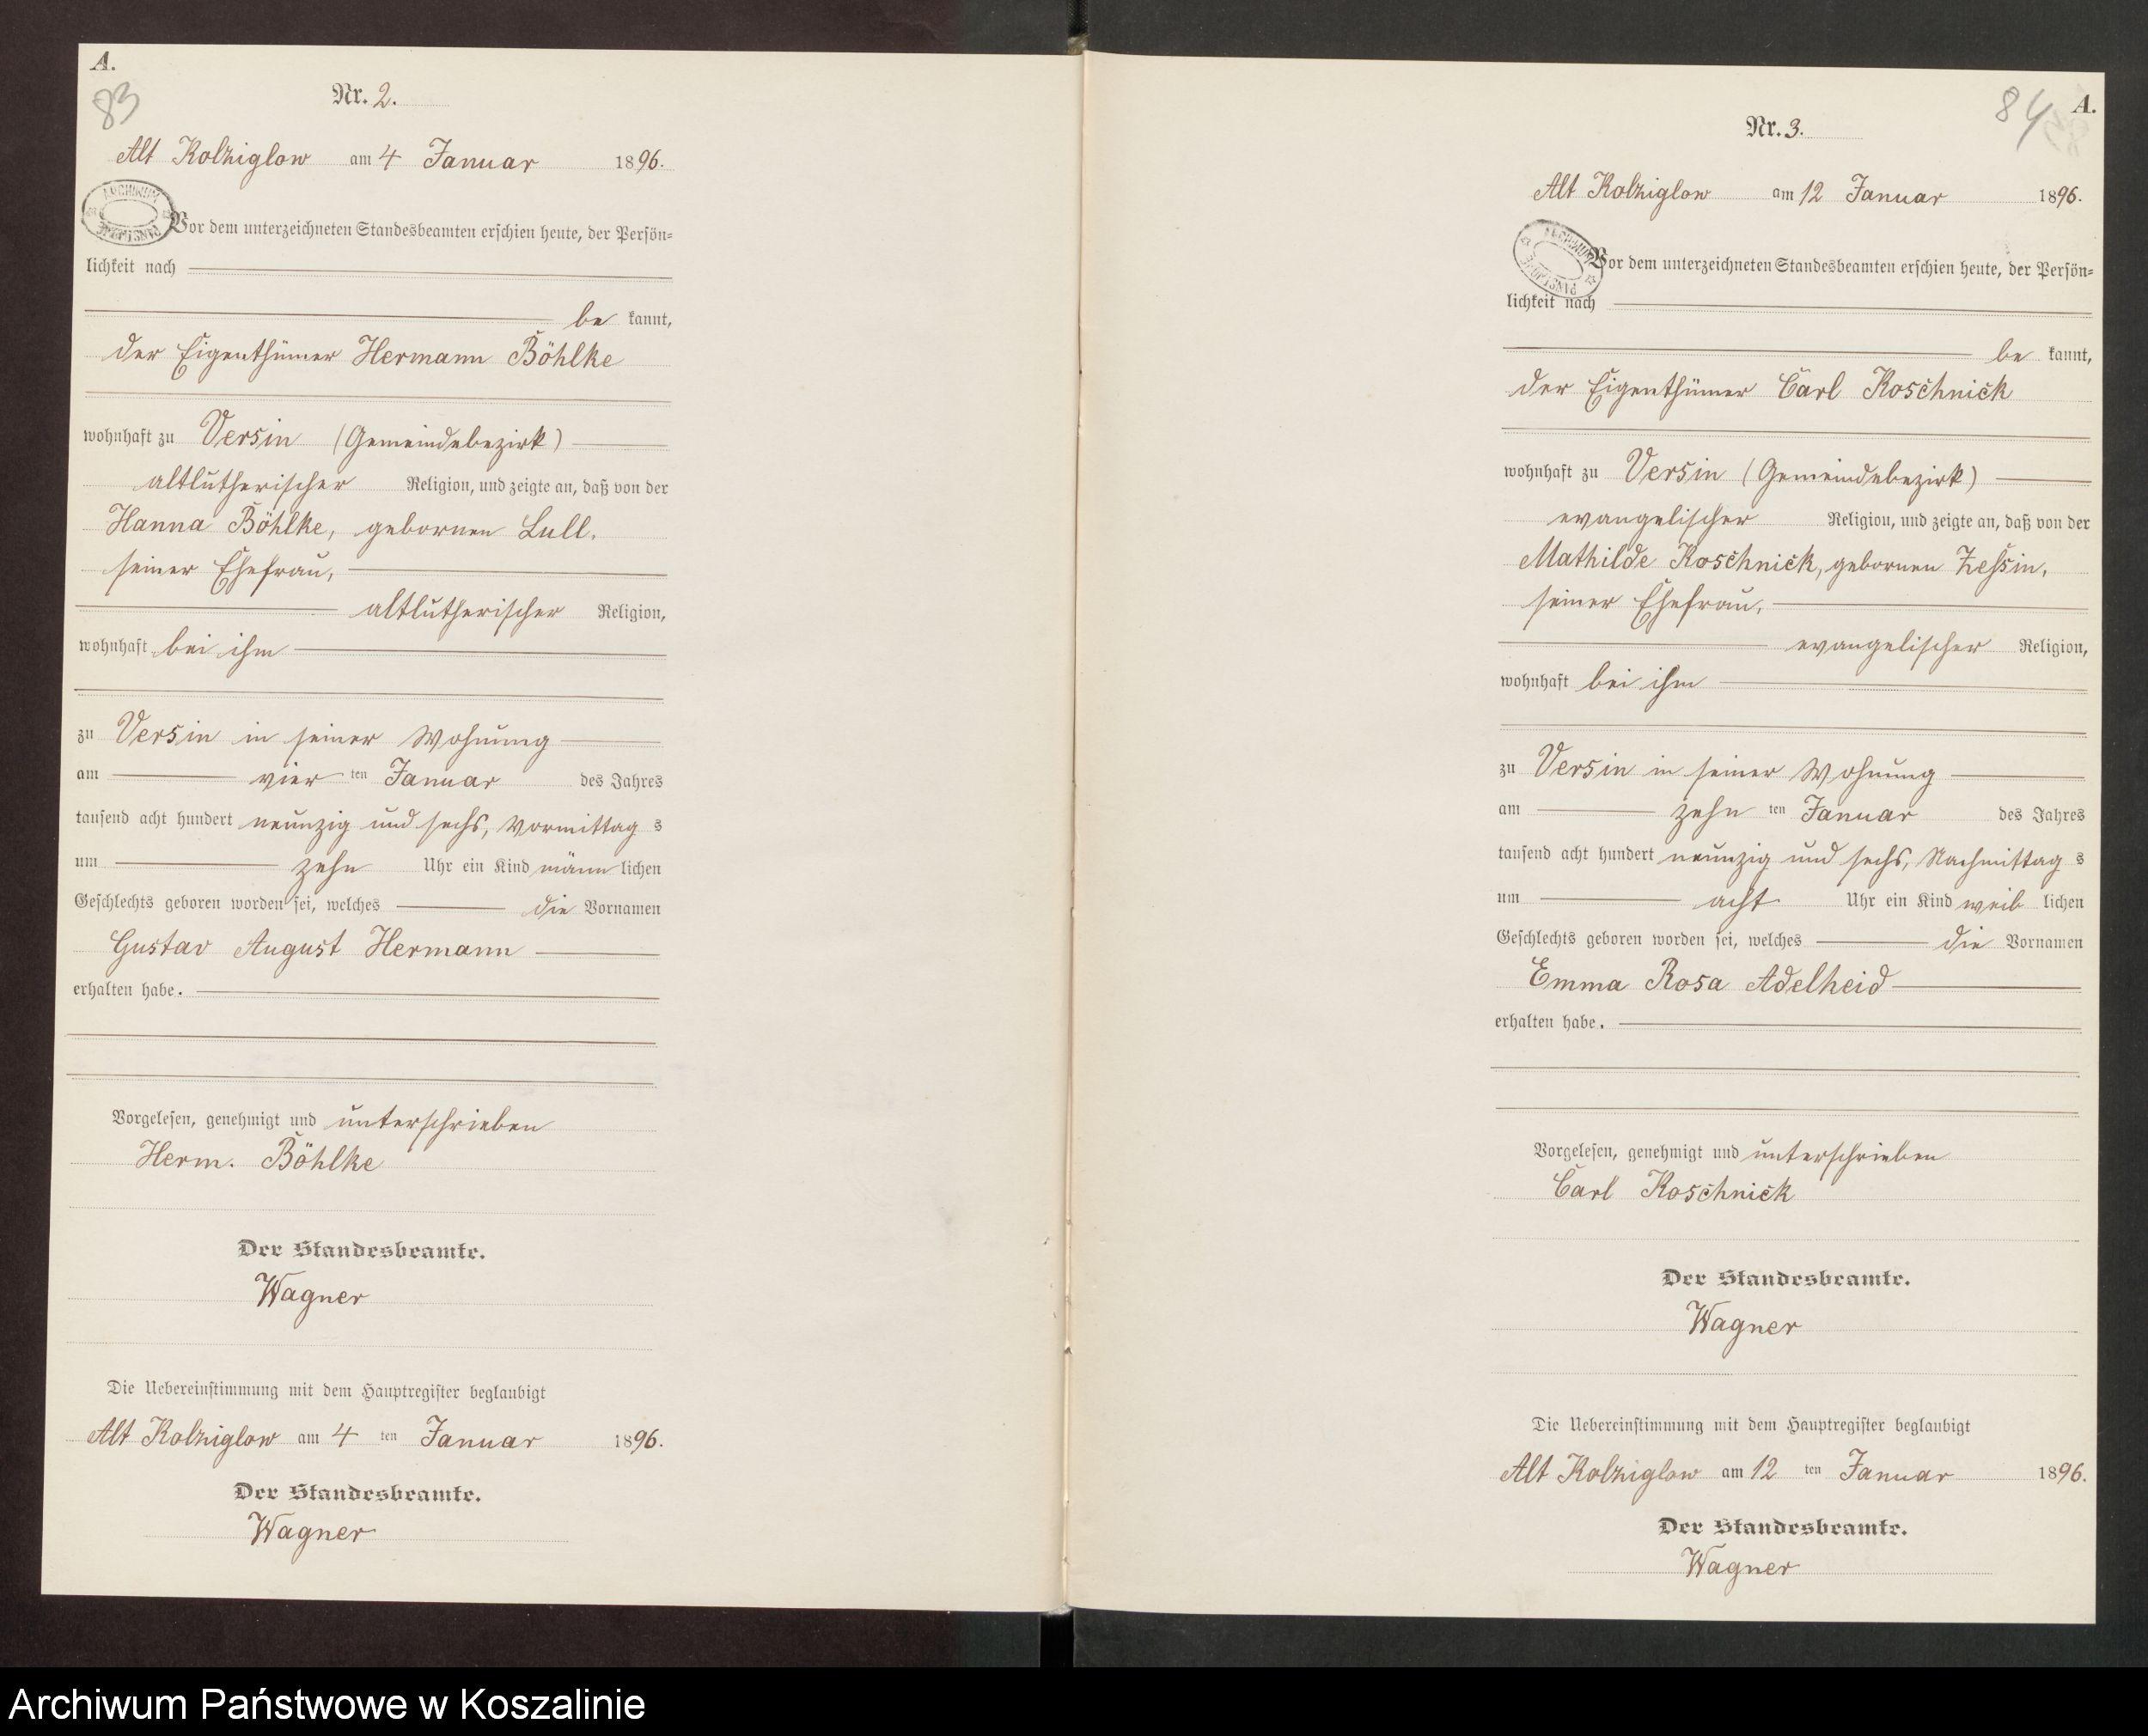 A.
83
Nr. 2.
Alt Kolziglow am 4 Januar 1896.
ARCHIWUM PAŃSTWOWE
Vor dem unterzeichneten Standesbeamten erschien heute, der Persön=
lichkeit nach
be kannt,
der Eigenthümer Hermann Böhlke
wohnhaft zu Versin (Gemeindebezirk)
altlutherischer Religion, und zeigte an, daß von der
Hanna Böhlke, gebornen Lull,
seiner Ehefrau,
altlutherischer Religion,
wohnhaft bei ihm
zu Versin in seiner Wohnung
am vier ten Januar des Jahres
tausend acht hundert neunzig und sechs, Vormittag s
um zehn Uhr ein Kind männ lichen
Geschlechts geboren worden sei, welches die Vornamen
Gustav August Hermann
erhalten habe.
Vorgelesen, genehmigt und unterschrieben
Herm. Böhlke
Der Standesbeamte.
Wagner
Die Uebereinstimmung mit dem Hauptregister beglaubigt
Alt Kolziglow am 4 ten Januar 1896.
Der Standesbeamte.
Wagner
84 A.
Nr. 3.
Alt Kolziglow am 12 Januar 1896.
ARCHIWUM PAŃSTWOWE
Vor dem unterzeichneten Standesbeamten erschien heute, der Persön=
lichkeit nach
be kannt,
der Eigenthümer Carl Koschnick
wohnhaft zu Versin (Gemeindebezirk)
evangelischer Religion, und zeigte an, daß von der
Mathilde Koschnick, gebornen Zessin,
seiner Ehefrau,
evangelischer Religion,
wohnhaft bei ihm
zu Versin in seiner Wohnung
am zehn ten Januar des Jahres
tausend acht hundert neunzig und sechs, Nachmittag s
um acht Uhr ein Kind weib lichen
Geschlechts geboren worden sei, welches die Vornamen
Emma Rosa Adelheid
erhalten habe.
Vorgelesen, genehmigt und unterschrieben
Carl Koschnick
Der Standesbeamte.
Wagner
Die Uebereinstimmung mit dem Hauptregister beglaubigt
Alt Kolziglow am 12 ten Januar 1896.
Der Standesbeamte.
Wagner
Archiwum Państwowe w Koszalinie